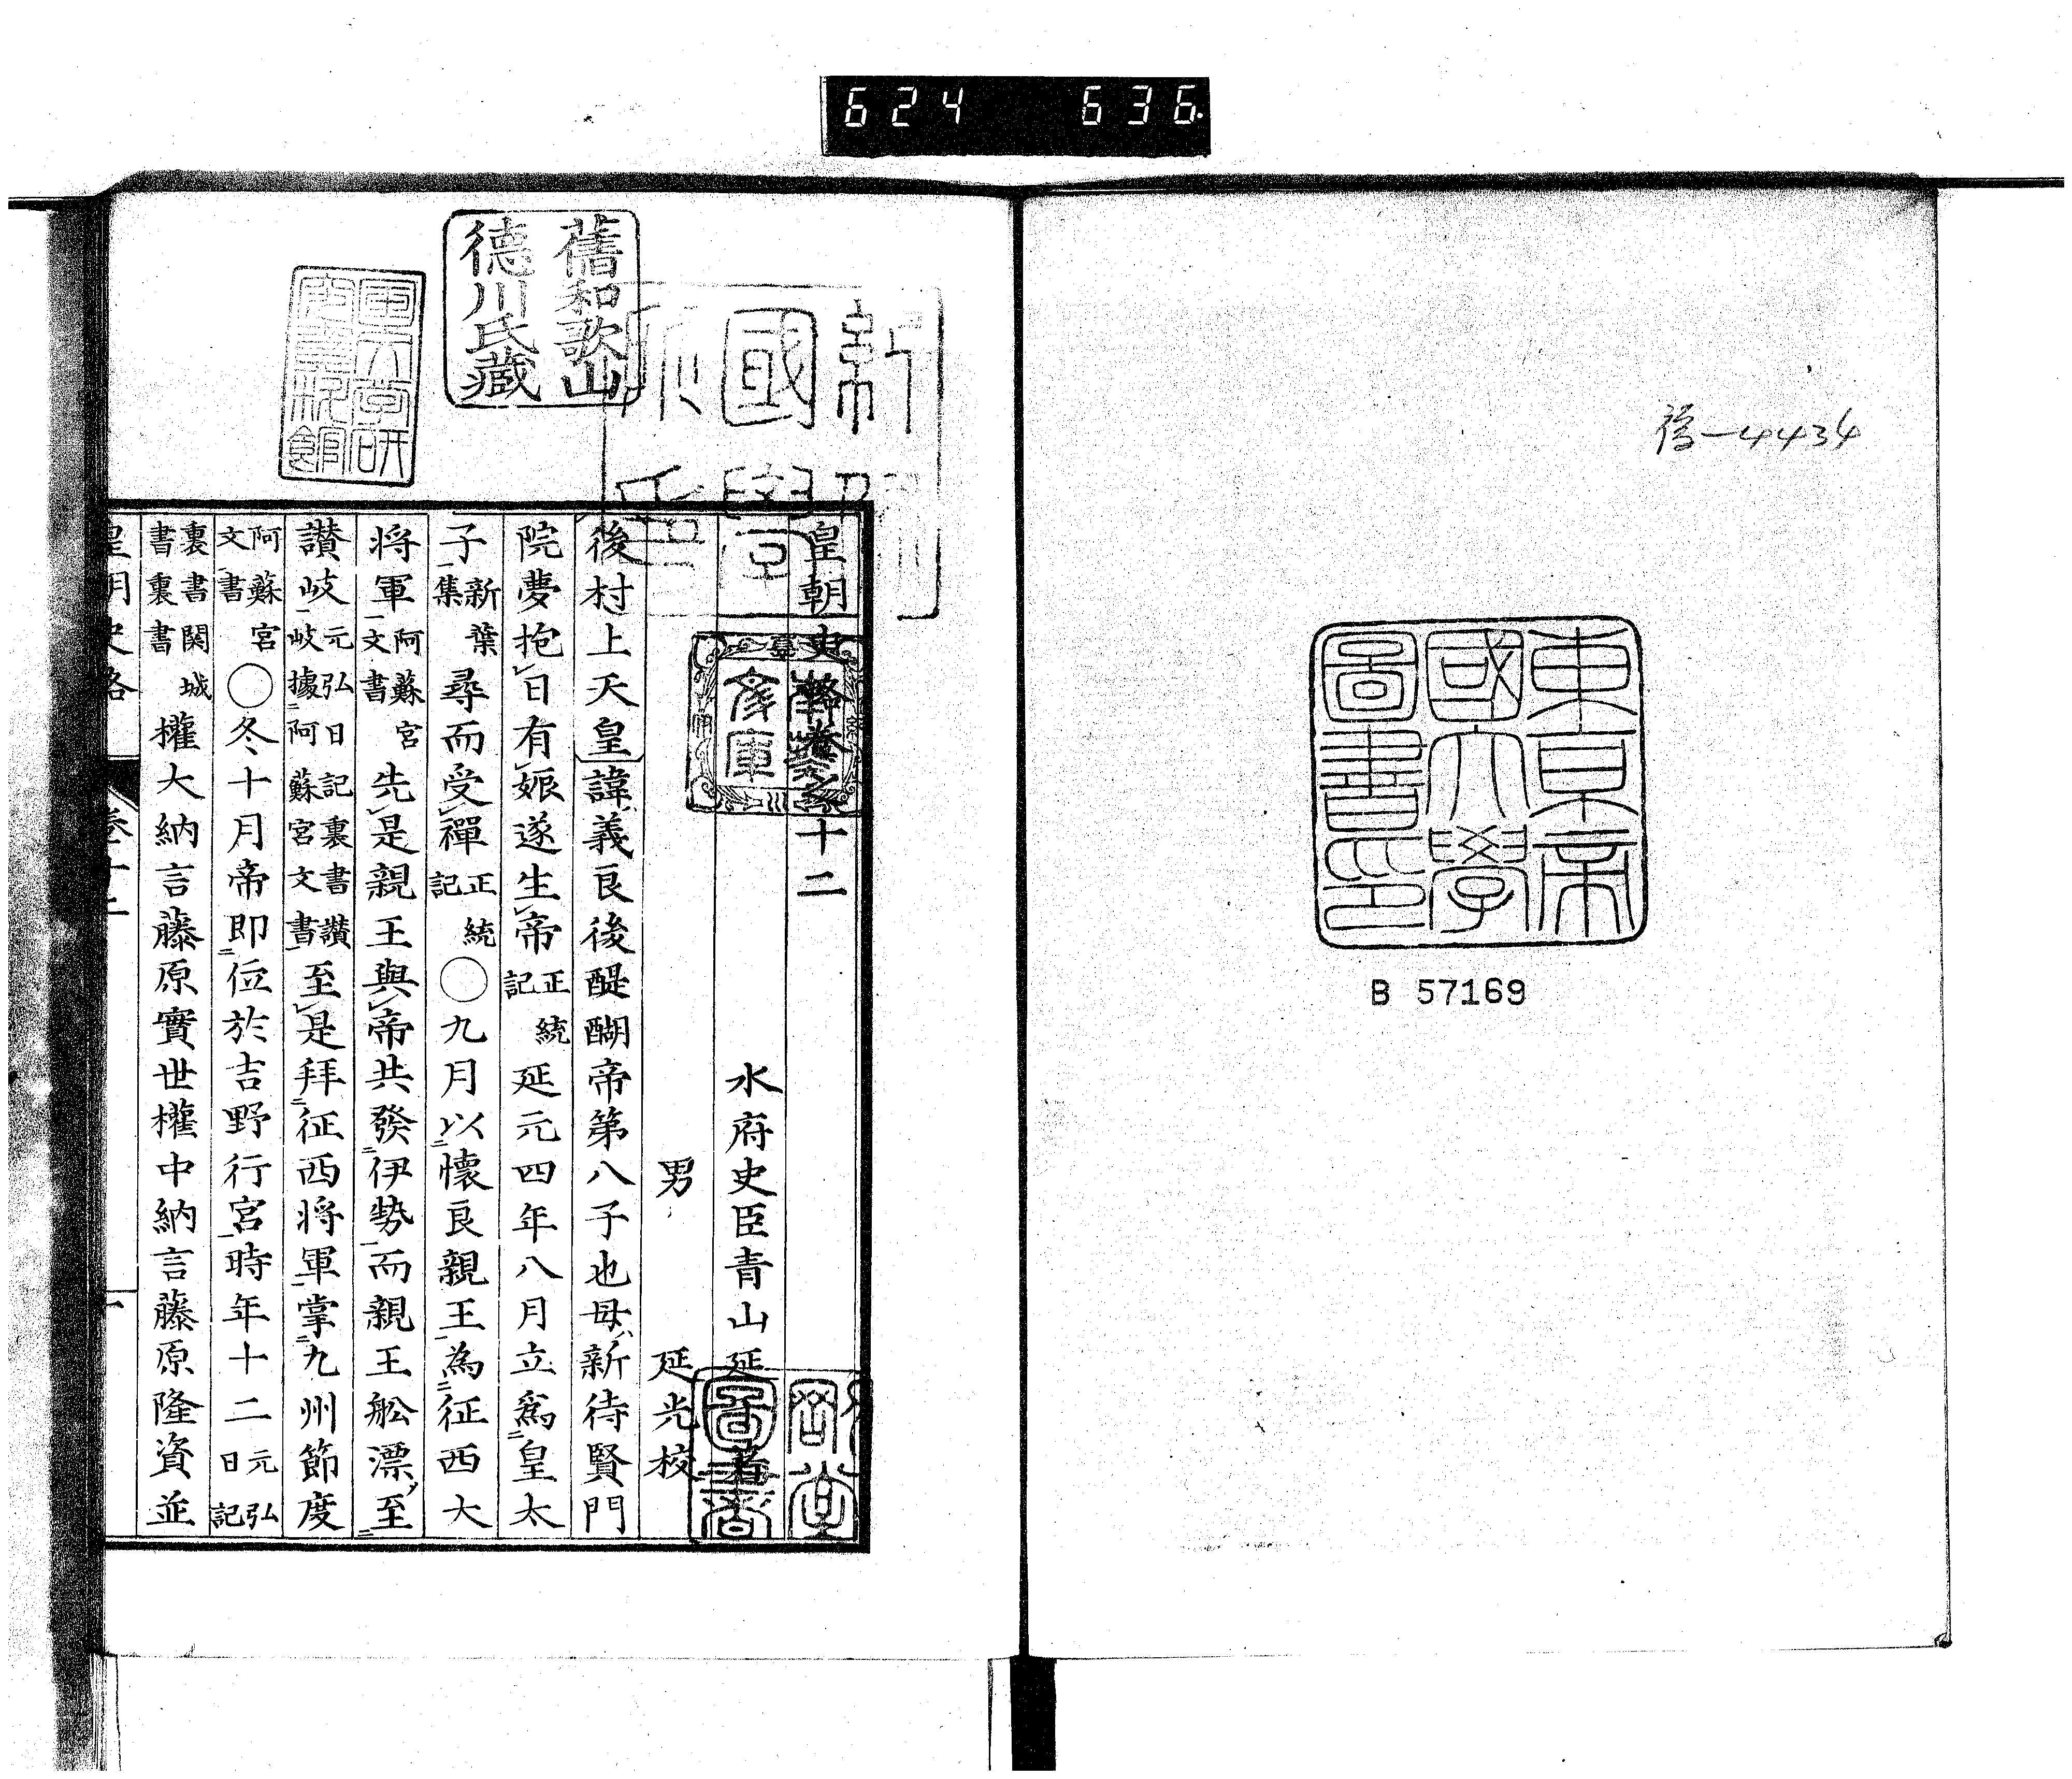 624 636
禧一4434
東京帝
國大學
圖書印
B 57169
舊和歌山
德川氏藏
皇朝史略卷之十二
水府史臣青山延于著
男 延光校
後村上天皇諱義良後醍醐帝第八子也母新待賢門
院夢抱日有娠遂生帝正統記延元四年八月立爲皇太
子新葉集尋而受禪正統記○九月以懷良親王為征西大
将軍阿蘇宮文書先是親王與帝共發伊勢而親王舩漂至
讃岐元弘日記裏書讃岐據阿蘇宮文書至是拜征西将軍掌九州節度
阿蘇宮文書○冬十月帝即位於吉野行宮時年十二元弘日記
裏書関城書裏書權大納言藤原實世權中納言藤原隆資並
皇朝史略 卷十二 一